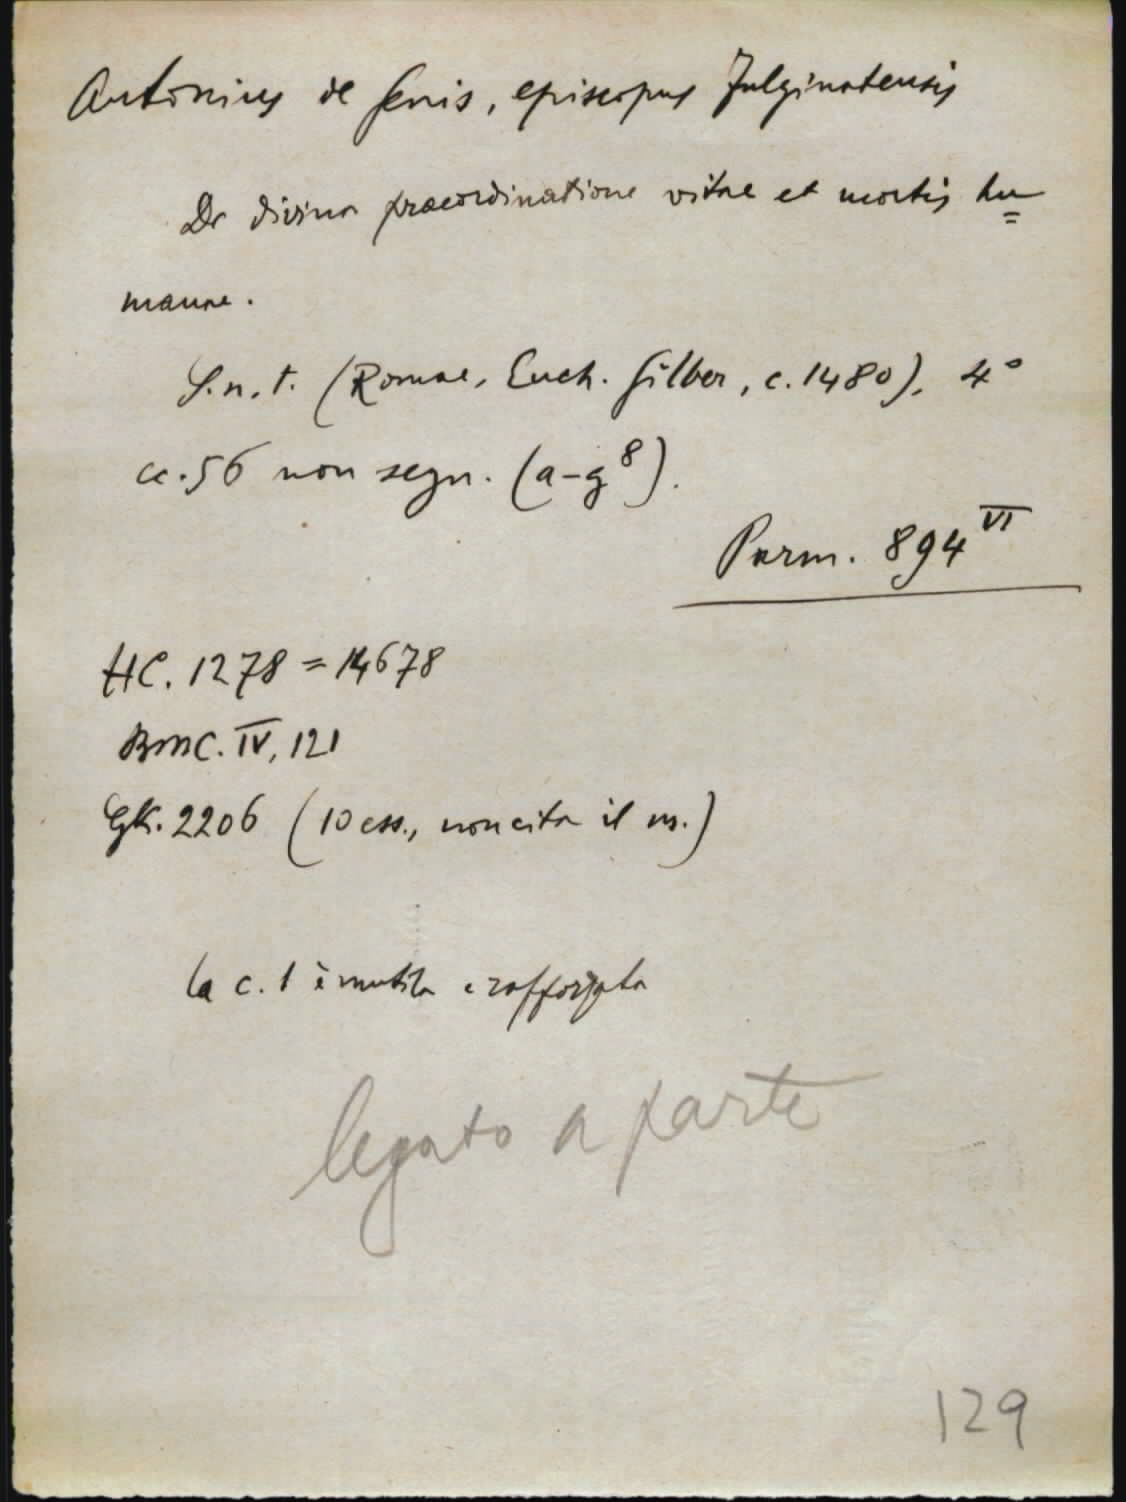 Antonius de Senis, episcopus Fulginatensis
De divina praeordinatione vitae et mortis hu=
manae.
S.n.t. (Romae, Euch. Silber, c. 1480), 4°
cc. 56 non segn. (a-g⁸).
Parm. 894 VI
HC. 1278 = 14678
BMC. IV, 121
GK. 2206 (10 ess., non cita il ns.)
la c. 1 è mutila e rafforzata
legato a parte
129